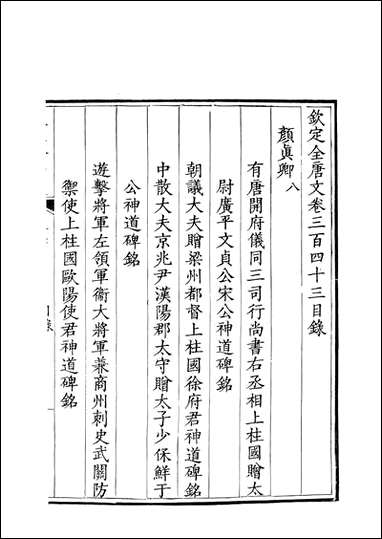 欽定全唐文卷三百四十三目錄
顏眞卿八
有唐開府儀同三司行尚書右丞相上柱國贈太
尉廣平文貞公宋公神道碑銘
朝議大夫贈梁州都督上柱國徐府君神道碑銘
中散大夫京兆尹漢陽郡太守贈太子少保鮮于
公神道碑銘
遊擊將軍左領軍衞大將軍兼商州刺史武關防
禦使上柱國歐陽使君神道碑銘